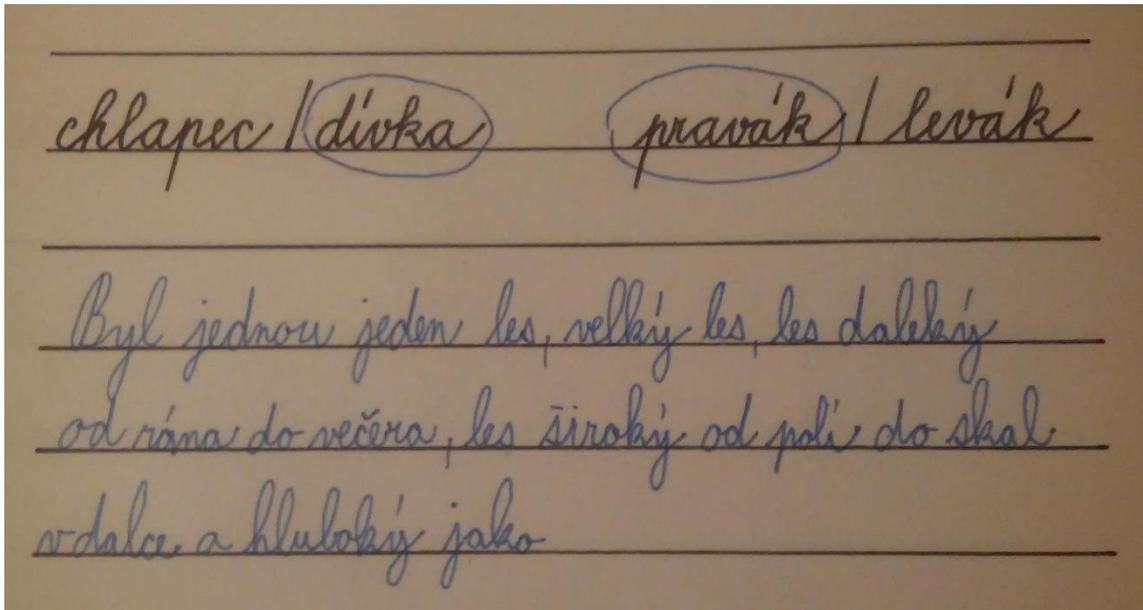 chlapec / dívka pravák / levák
Byl jednou jeden les, velký les, les daleký
od rána do večera, les široký od polí do skal
v dalce a hluboký jako